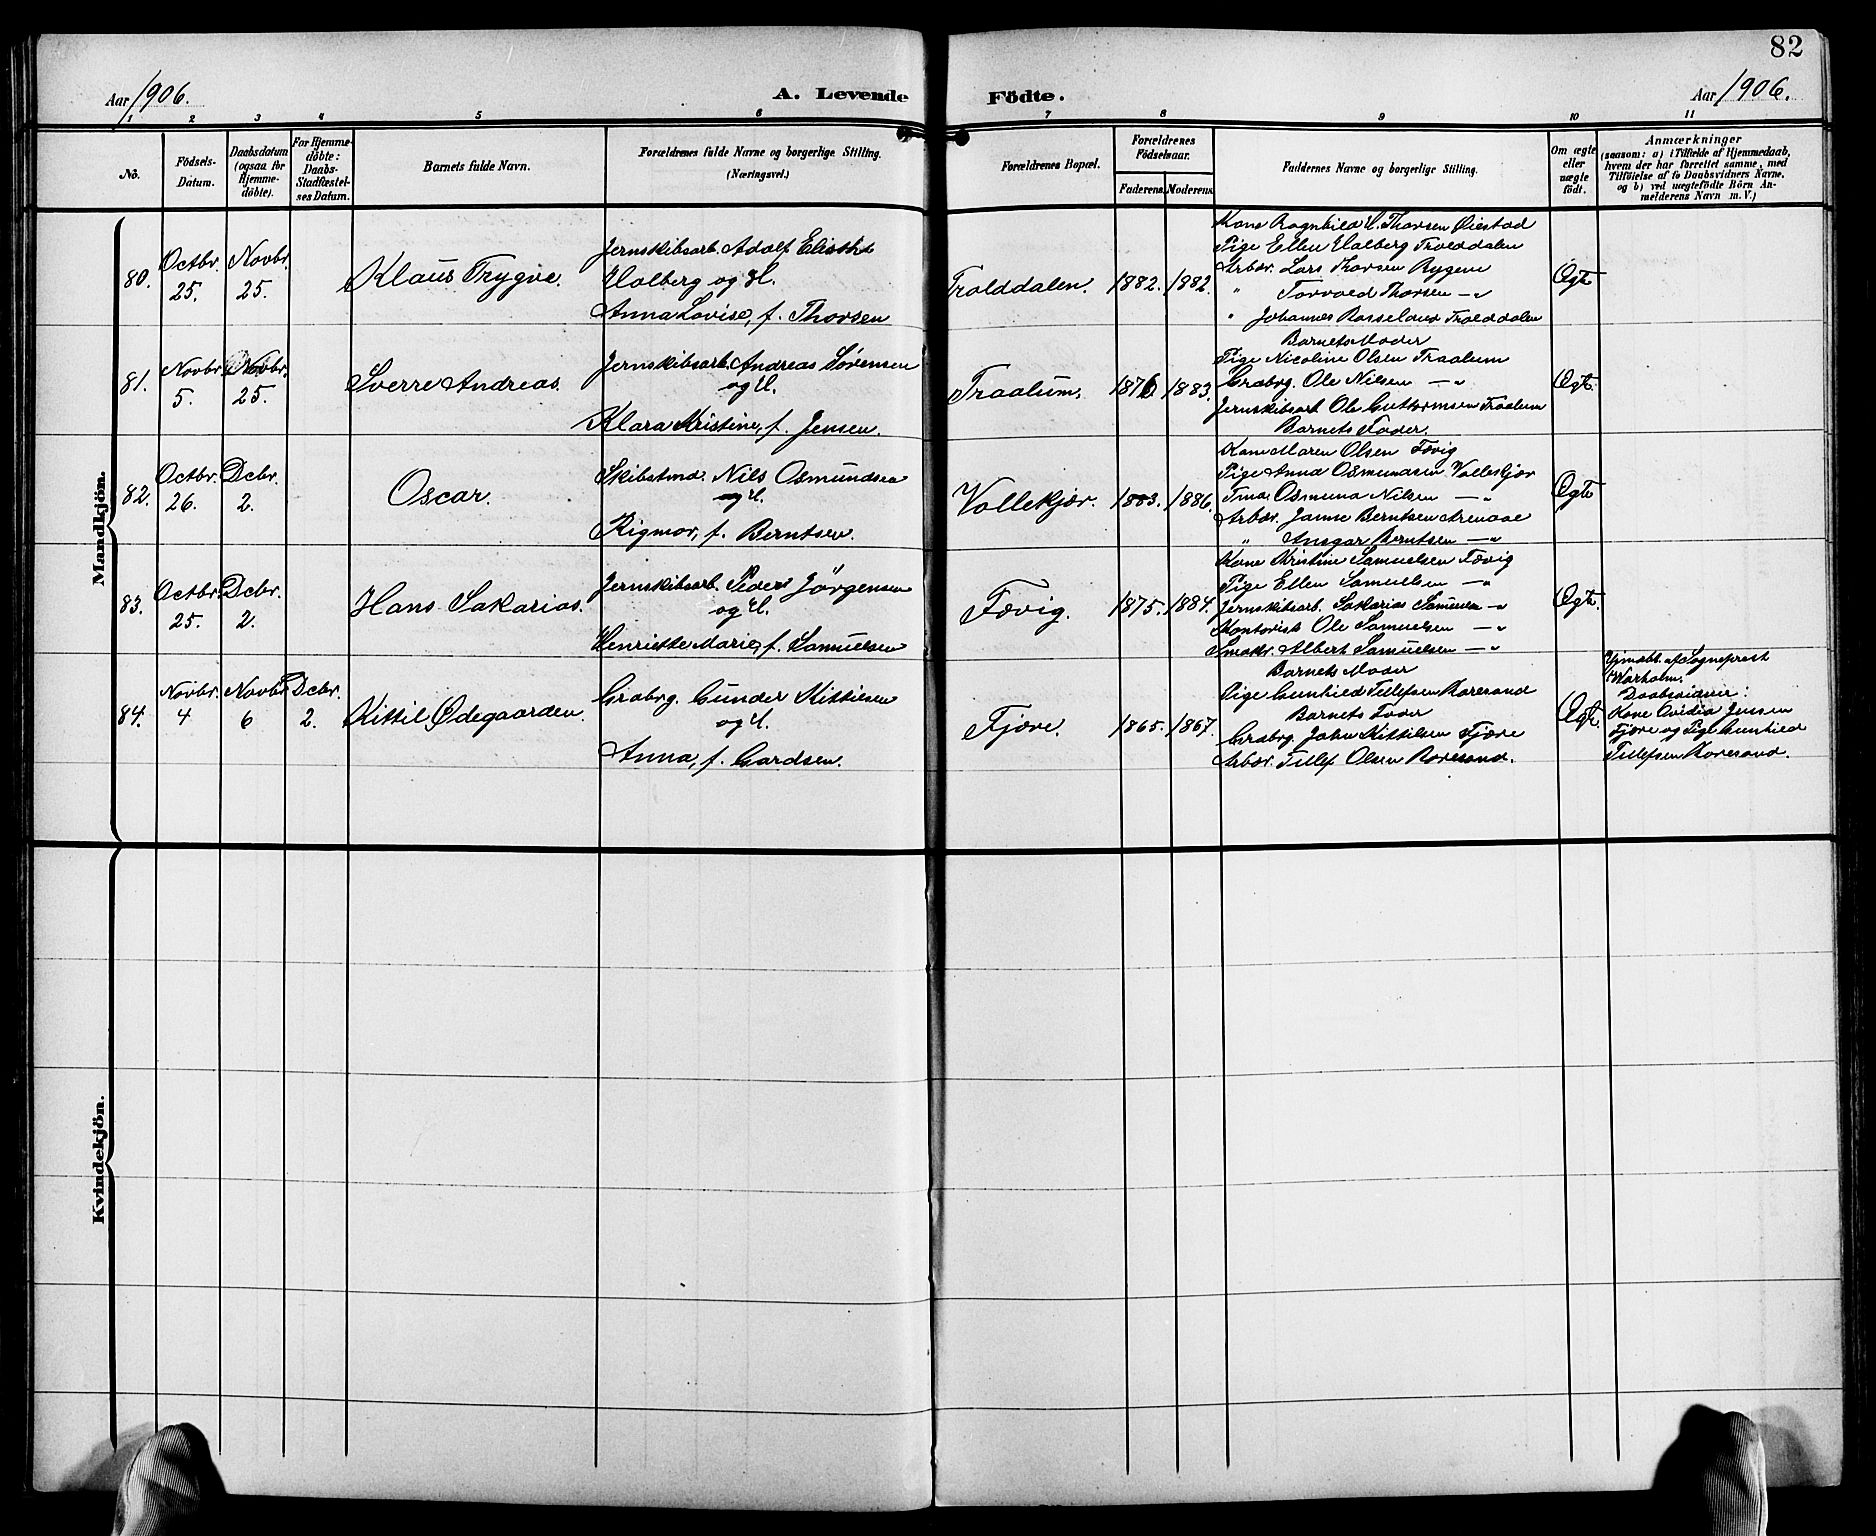 82
Aar 1906.
A. Levende
Födte.
Aar 1906.
1 2 3 4 5 6 7 8 9 10 11
No.
Födsels-
Datum.
Daabsdatum
(ogsaa for
Hjemme-
döbte).
For Hjemme-
döbte:
Daabs-
Stadfæstel-
ses Datum.
Barnets fulde Navn.
Forældrenes fulde Navne og borgerlige Stilling.
(Næringsvei.)
Forældrenes Bopæl.
Forældrenes
Födselsaar.
Faderens.
Moderens.
Faddernes Navne og borgerlige Stilling.
Om ægte
eller
uægte
födt.
Anmærkninger
(saasom: a) i Tilfælde af Hjemmedaab,
hvem der har forrettet samme, med
Tilföielse af to Daabsvidners Navne,
og b) ved uægtefödte Börn An-
melderens Navn m. V.)
Mandkjön.
80.
Octbr.
25.
Novbr.
25.
Klaus Trygve.
Jernskibsarb. Adolf
Holberg og H.
Anna Lovise, f. Thorsen
Trolddalen.
1882.
1882.
Kone Ragnhild Thorsen Øiestad
Pige Ellen Holberg Trolddalen
Arbdr. Lars Thorsen Rygene
" Torvald Thorsen — "
" Johannes Rosseland Trolddalen
Barnets Moder
Ægte
81.
Novbr.
5.
Novbr.
25.
Sverre Andreas.
Jernskibsarb. Andreas Sörensen
og H.
Klara Kristine, f. Jensen.
Traalum.
1876
1883.
Pige Nicoline Olsen Traalum
Grdbrg. Ole Nilsen — "
Jernskibsarb Ole Guttormsen Traalum
Barnets Fader.
Ægte.
82.
Octbr.
26.
Dcbr.
2.
Oscar.
Skibstmd. Nils Osmundsen
og H.
Rigmor, f. Berntsen.
Vollekjær.
1883.
1886.
Kone Maren Olsen Fævig
Pige Anna Osmundsen Vollekjær
Tmd. Osmund Nilsen — "
Arbdr. Janne Berntsen Arendal
" Ansgar Berntsen — "
Ægte
83.
Octbr.
25.
Dcbr.
2.
Hans Sakarias.
Jernskibsarb. Peder Jörgensen
og H.
Henriette Marie, f. Samuelsen
Fævig.
1875.
1884.
Kone Kristine Samuelsen Fævig
Pige Ellen Samuelsen — "
Jernskibsarb. Sakarias Samuelsen — "
Kontorist Ole Samuelsen — "
Smedr. Albert Samuelsen — "
Barnets Moder
Ægte.
84.
Novbr.
4
Novbr.
6
Dcbr.
2.
Kittil Ødegaarden.
Grdbrg. Gunder Kittilsen
og H.
Anna, f. Gardsen.
Fjære.
1865.
1867.
Pige Gunhild Tellefsen Roresand
Barnets Fader
Grdbrg. John Kittilsen Fjære
Arbdr. Tellef Olsen Roresand.
Ægte.
Hjmdbt. af Sogneprest
Daabsvidner:
Kone Ovidia Jensen
Fjære og Pige Gunhild
Tellefsen Roresand.
Kvindekjön.